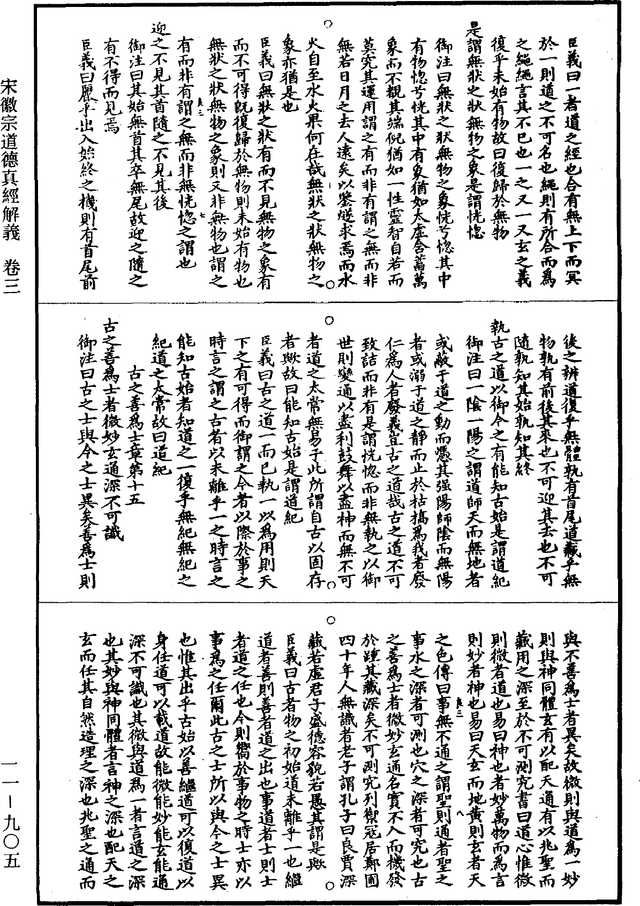 宋徽宗道德真經解義　卷三
一一—九〇五
臣義曰一者道之經也合有無上下而冥
於一則道之不可名也繩則有所合而爲
之繩繩言其不已也一之又一又玄之義
復乎未始有物故曰復歸於無物
是謂無狀之狀無物之象是謂恍惚
御注曰無狀之狀無物之象恍兮惚其中
有物惚兮恍其中有象猶如太虛含蓄萬
象而不覩其端倪猶如一性靈智自若而
莫究其運用謂之有而非有謂之無而非
無若日月之去人遠矣以鑒燧求焉而水
火自至水火果何在哉無狀之狀無物之
象亦猶是也
臣義曰無狀之狀有而不見無物之象有
而不可得既復歸於無物則未始有物也
無狀之狀無物之象則又非無物也謂之
有而非有謂之無而非無恍惚之謂也
迎之不見其首隨之不見其後
御注曰其始無首其卒無尾故迎之隨之
有不得而見焉
臣義曰麗乎出入始終之機則有首尾前
後之辨道復乎無體孰有首尾道藏乎無
物孰有前後其來也不可迎其去也不可
隨孰知其始孰知其終
執古之道以御今之有能知古始是謂道紀
御注曰一陰一陽之謂道師天而無地者
或蔽于道之動而憑其強陽師陰而無陽
者或溺于道之靜而止於枯槁爲我者廢
仁爲人者廢義豈古之道哉古之道不可
致詰而非有是謂恍惚而非無執之以御
世則變通以盡利鼓舞以盡神而無不可
者道之太常無易于此所謂自古以固存
者歟故曰能知古始是謂道紀
臣義曰古之道一而已執一以爲用則天
下之有可得而御謂之今者以際於事之
時言之謂之古者以未離乎一之時言之
能知古始者知道之一復乎無紀無紀之
紀道之太常故曰道紀
古之善爲士章第十五
古之善爲士者微妙玄通深不可識
御注曰古之士與今之士異矣善爲士則
與不善爲士者異矣故微則與道爲一妙
則與神同體玄有以配天通有以兆聖而
藏用之深至於不可測究書曰道心惟微
則微者道也易曰神也者妙萬物而爲言
則妙者神也易曰天玄而地黃則玄者天
之色傳曰事無不通之謂聖則通者聖之
事水之深者可測也穴之深者可究也古
之善爲士者微妙玄通名實不入而機發
於踵其藏深矣不可測究列禦寇居鄭圃
四十年人無識者老子謂孔子曰良賈深
藏若虛君子盛德容貌若愚其謂是歟
臣義曰古者物之初始道未離乎一也繼
道者善則善者道之出也事道者士則士
者道之任也今則嚮於事物之時士亦以
事爲之任爾此古之士所以與今之士異
也惟其出乎古始以善繼道可以復道以
身任道可以載道故能微能妙能玄能通
深不可識也其微與道爲一者言道之深
也其妙與神同體者言神之深也配天之
玄而任其自然造理之深也兆聖之通而